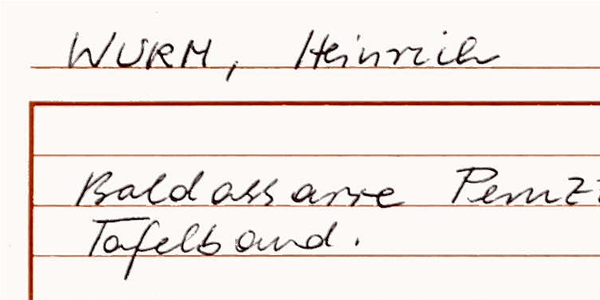 WURM, Heinrich
Baldassarre Peruzz
Tafelband.